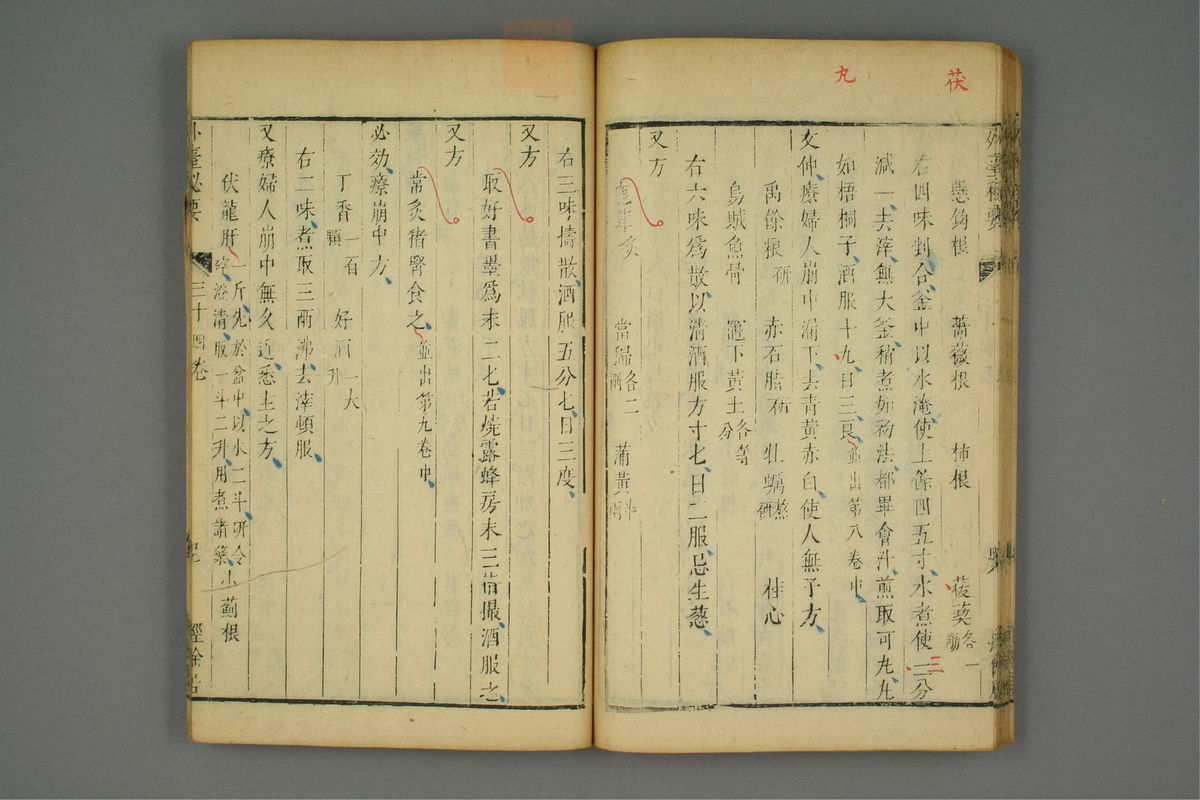 茯
九
懸鉤根 薔薇根 柿根 菝葜各一斤
右四味剉合釜中以水淹使上餘四五寸水煮使三分
減一去滓無大釜稍煮如初法都畢會汁煎取可丸丸
如梧桐子酒服十丸日三良並出第八卷中
文仲療婦人崩中漏下去青黃赤白使人無子方
禹餘糧研 赤石脂研 牡蠣熬研 桂心
烏賊魚骨 竈下黃土各等分
右六味為散以清酒服方寸匕日二服忌生蔥
又方
鹿茸炙 當歸各二兩 蒲黃半兩
右三味擣散酒服五分匕日三度
又方
取好書墨為末二匕若燒露蜂房末三指撮酒服之
又方
常炙豬腎食之並出第九卷中
必効療崩中方
丁香一百顆 好酒一大升
右二味煮取三兩沸去滓頓服
又療婦人崩中無久近悉主之方
伏龍肝一斤先於盆中以水二斗研令碎澄清取一斗二升用煮諸藥 小薊根
外臺秘要 三十四卷